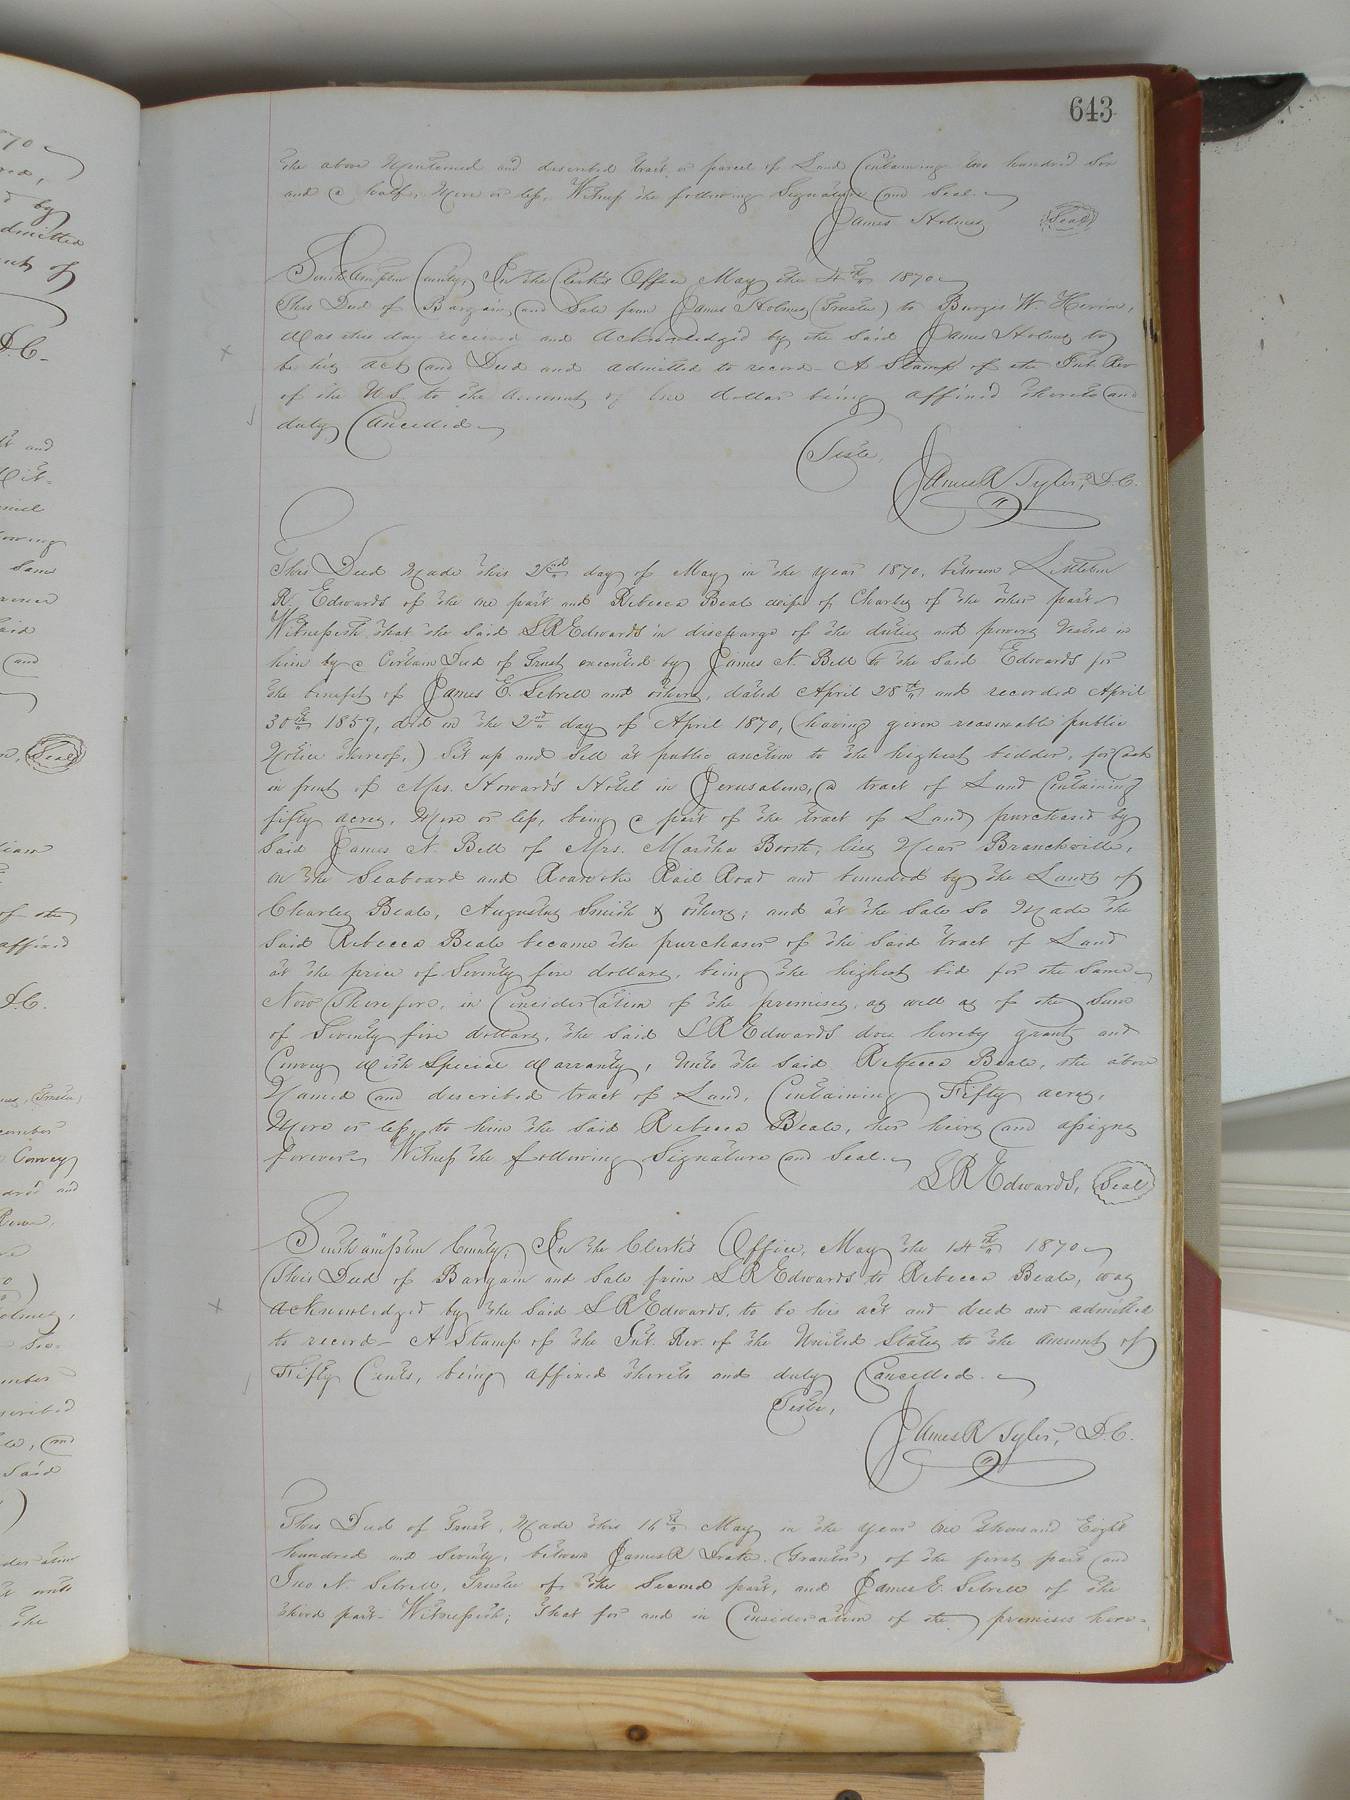 643
the above Mentioned and described tract, or parcel of Land Containing two hundred Six
and a half, More or less, Witness the following Signature and Seal.
James Holmes (Seal)
Southampton County, In the Clerk's Office May the 4th 1870
This Deed of Bargain, and Sale from James Holmes (Trustee) to Burges W. Herrin,
Was this day received and Acknowledged by the said James Holmes to
be his act and Deed and admitted to record - A Stamp of the Int. Rev
of the U.S. to the Amount of One dollar being affixed thereto and
duly Cancelled
Teste,
James R Tyler, D.C.
This Deed Made this 2nd day of May in the year 1870, between Littleton
R. Edwards of the one part and Rebecca Beale wife of Charles of the other part
Witnesseth that the said L R Edwards in discharge of the duties and powers Vested in
him by a Certain Deed of Trust executed by James N. Bell to the said Edwards for
the benefit of James E. Sebrell and others, dated April 28th and recorded April
30th 1859, did on the 2nd day of April 1870, (having given reasonable public
Notice thereof,) Set up and Sell at public auction to the highest bidder, for Cash
in front of Mrs. Howard's Hotel in Jerusalem, a tract of Land Containing
fifty acres, More or less, being a part of the tract of Land purchased by
Said James N. Bell of Mrs. Martha Booth, lies Near Branchville,
on the Seaboard and Roanoke Rail Road and bounded by the Lands of
Charles Beale, Augustus Smith & others; and at the Sale So Made the
Said Rebecca Beale became the purchaser of the Said tract of Land
at the price of Seventy five dollars, being the highest bid for the same
Now Therefore, in Consideration of the premises, as well as of the Sum
of Seventy five dollars, the said L R Edwards doe hereby grant and
Convey With Special Warranty, Unto the said Rebecca Beale, the above
Named and described tract of Land, Containing Fifty acres,
More or less, to him the said Rebecca Beale, her heirs and assigns
forever, Witness the following Signature and Seal.
L R Edwards, (Seal)
Southampton County, In the Clerk's Office, May the 14th 1870
This Deed of Bargain and Sale from L R Edwards to Rebecca Beale, was
acknowledged by the said L R Edwards, to be his act and deed and admitted
to record - A Stamp of the Int. Rev. of the United States to the amount of
Fifty Cents, being affixed thereto and duly Cancelled.
Teste,
James R Tyler, D.C.
This Deed of Trust, Made this 16th May in the year One thousand Eight
hundred and Seventy, between James R Drake (Grantor) of the first part and
Jno N. Sebrell, Trustee of the Second part, and James E. Sebrell of the
third part - Witnesseth; That for and in Consideration of the premises here-